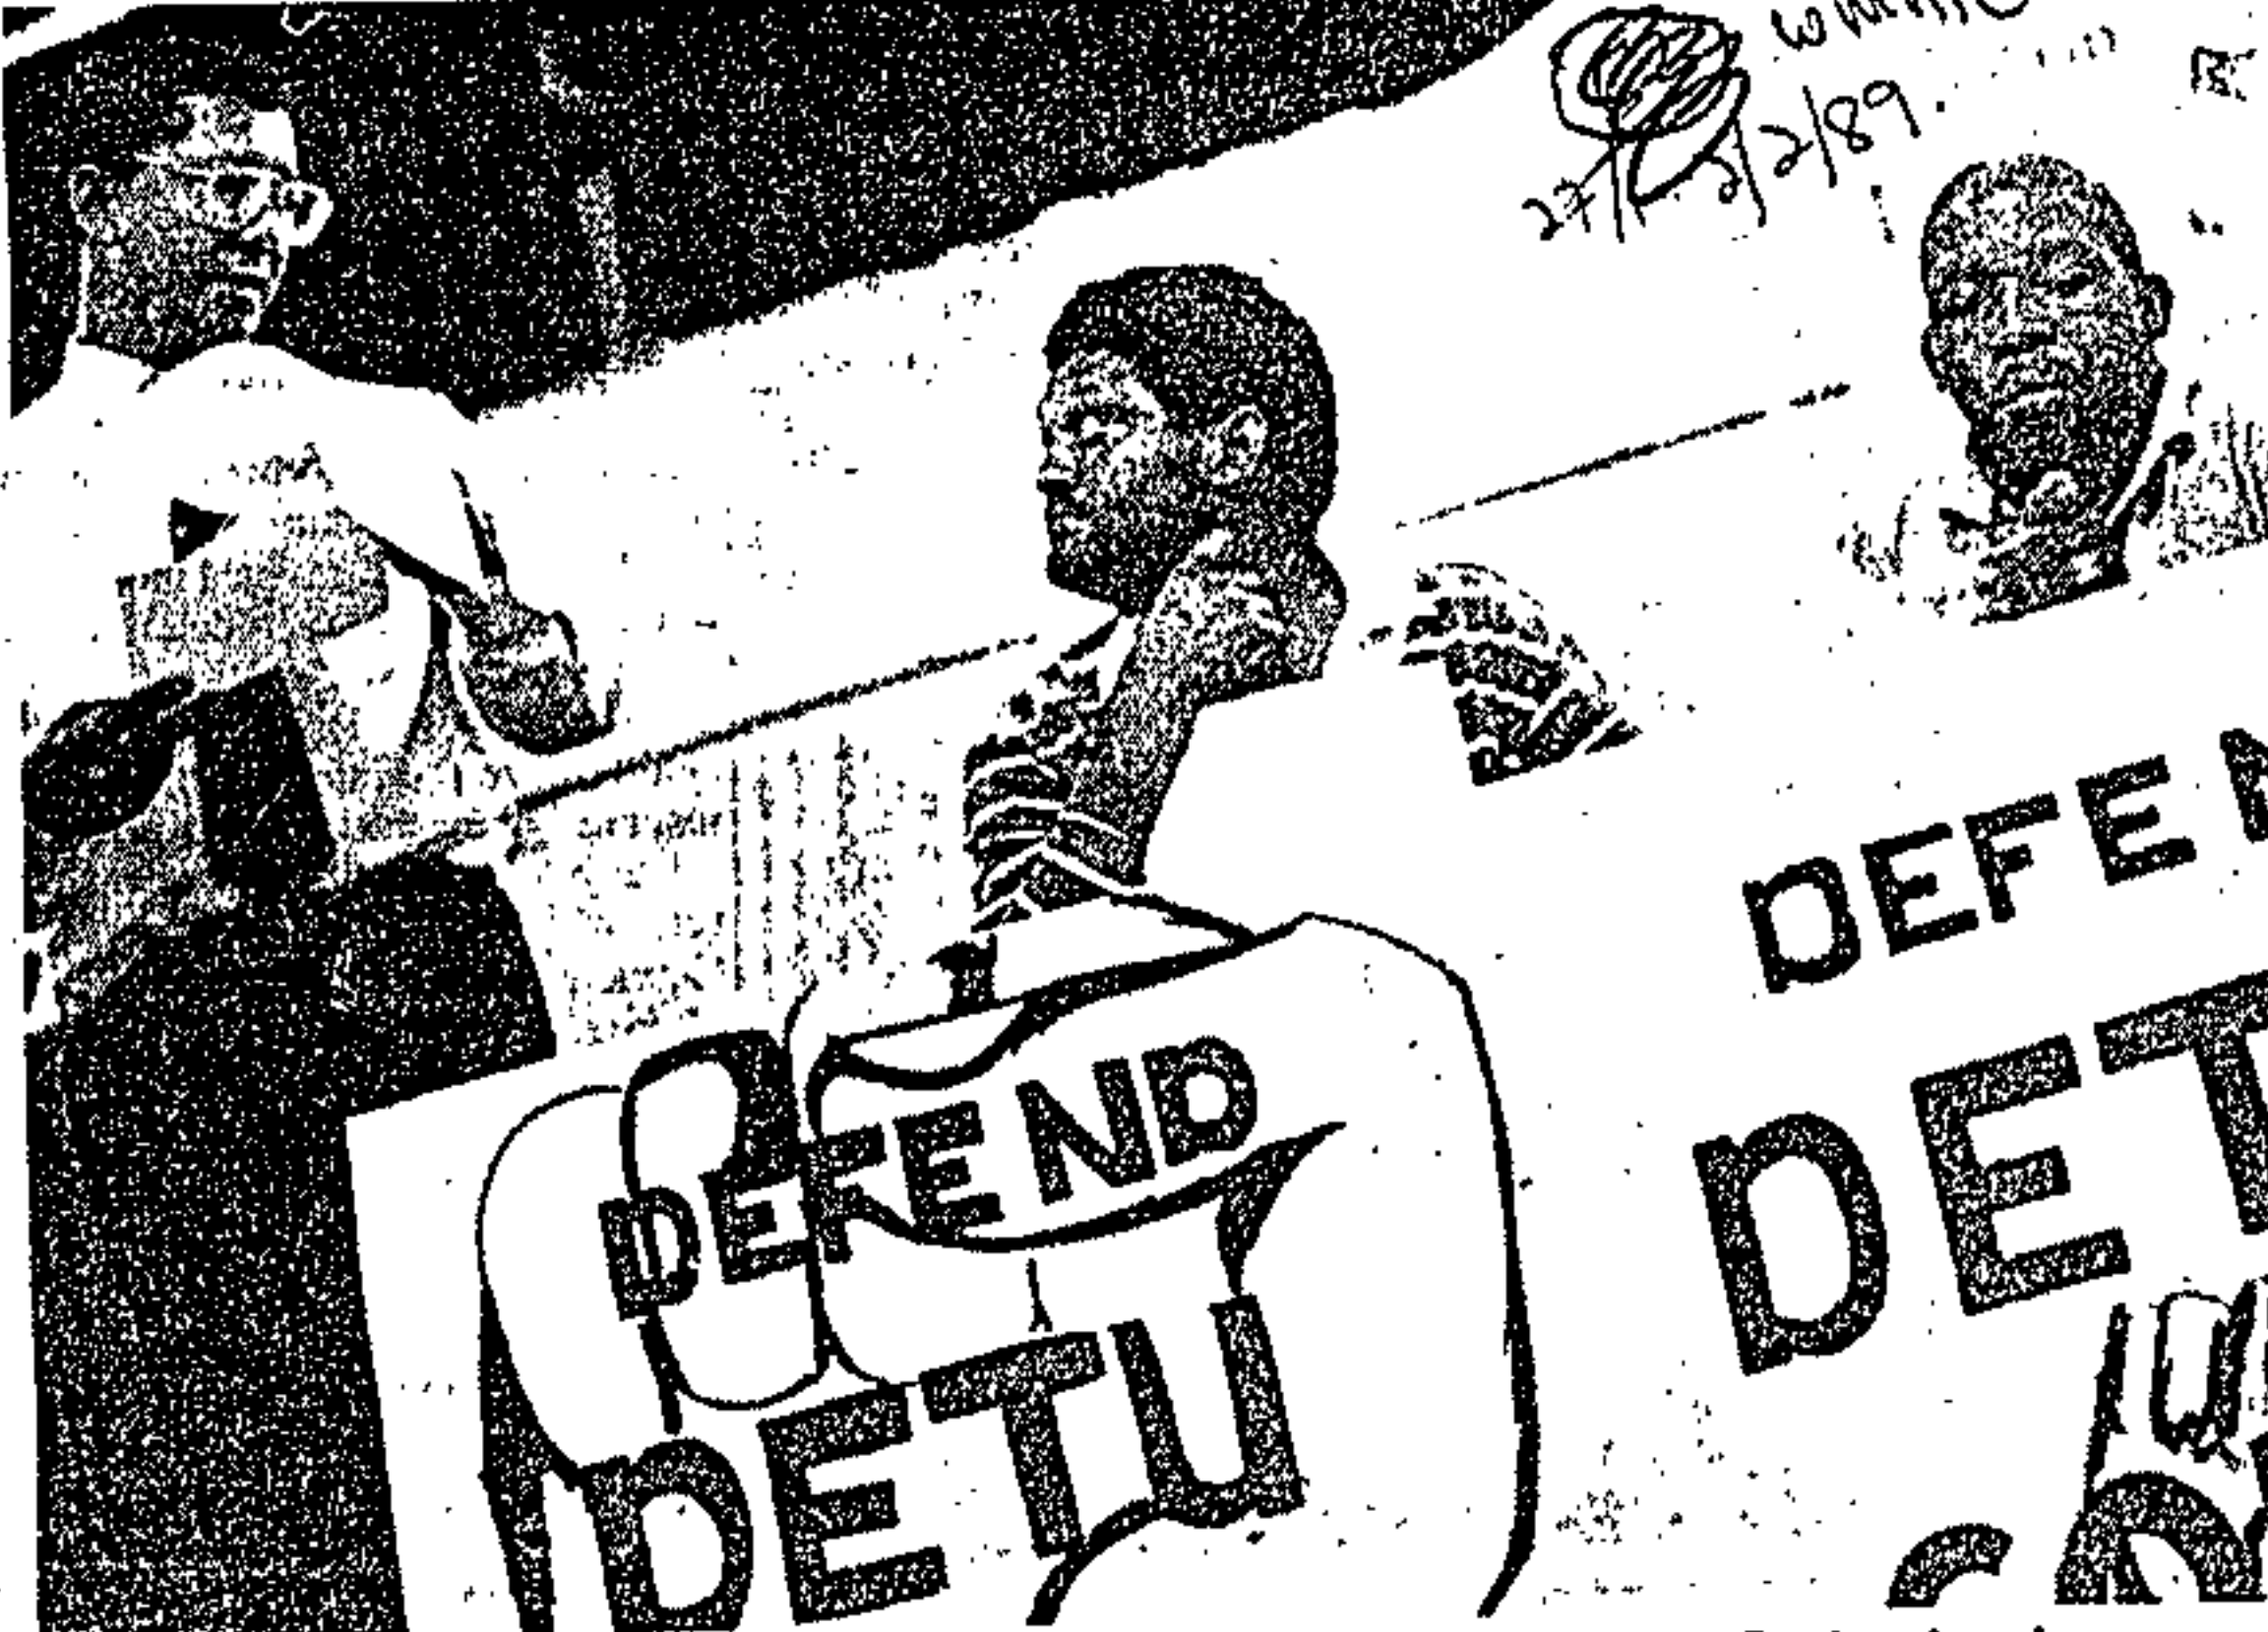 27/2/89
DEFEND
DETU
DEFEN
DET